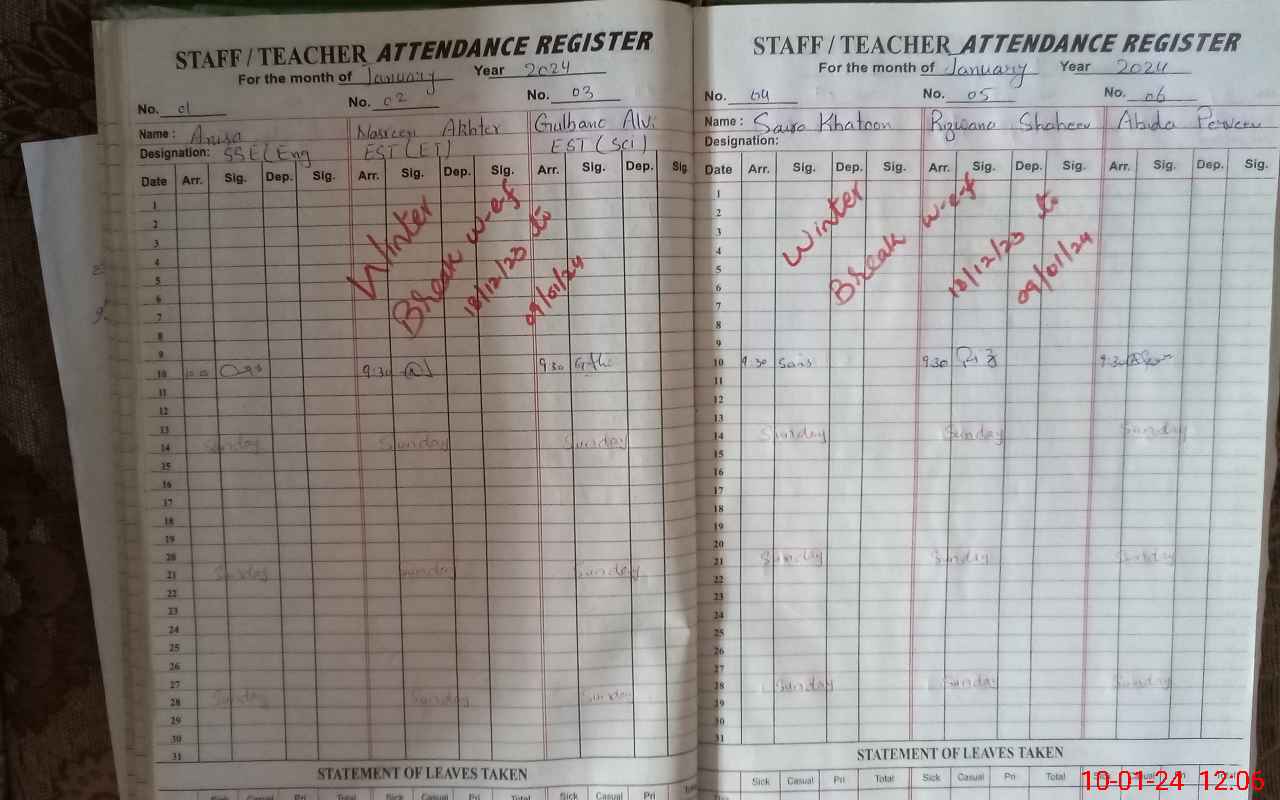 STAFF / TEACHER ATTENDANCE REGISTER
For the month of January Year 2024
No. 01 No. 02 No. 03
Name : Anisa Nasreen Akhter Gulbano Alvi
Designation: SSE (Eng EST (ET) EST (Sci)
Date Arr. Sig. Dep. Sig. Arr. Sig. Dep. Sig. Arr. Sig. Dep. Sig
Winter
Break w-e-f
18/12/23 to
09/01/24
1
2
3
4
5
6
7
8
9
10 9:30 9:30
11
12
13
14 Sunday Sunday Sunday
15
16
17
18
19
20
21 Sunday Sunday Sunday
22
23
24
25
26
27
28 Sunday Sunday Sunday
29
30
31
STATEMENT OF LEAVES TAKEN
Sick Casual Pri Total Sick Casual Pri Total Sick Casual Pri
STAFF / TEACHER ATTENDANCE REGISTER
For the month of January Year 2024
No. 04 No. 05 No. 06
Name : Saira Khatoon Rizwana Shaheen Abida Perveen
Designation:
Date Arr. Sig. Dep. Sig. Arr. Sig. Dep. Sig. Arr. Sig. Dep. Sig.
Winter
Break w-e-f
18/12/23 to
09/01/24
1
2
3
4
5
6
7
8
9
10 9:30 9:30 9:30
11
12
13
14 Sunday Sunday Sunday
15
16
17
18
19
20
21 Sunday Sunday Sunday
22
23
24
25
26
27
28 Sunday Sunday Sunday
29
30
31
STATEMENT OF LEAVES TAKEN
Sick Casual Pri Total Sick Casual Pri Total Sick Casual Pri
10-01-24 12:06